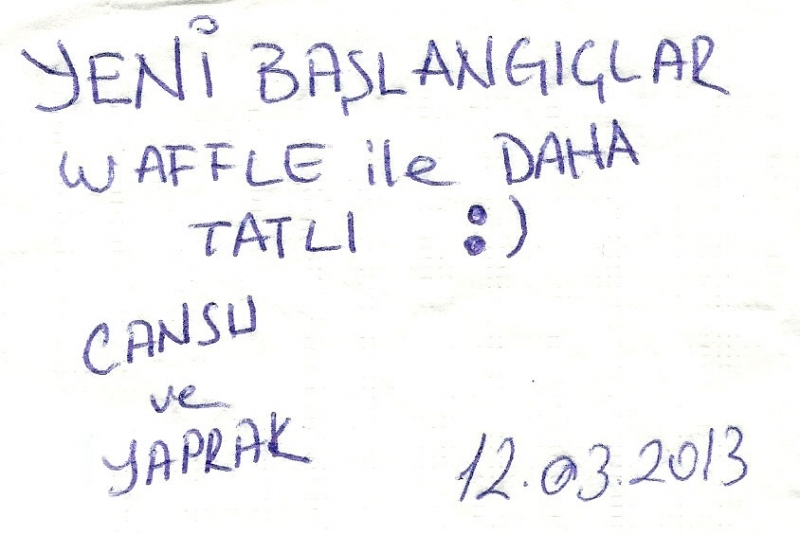 YENİ BAŞLANGIÇLAR
WAFFLE ile DAHA
TATLI :)
CANSU
ve
YAPRAK
12.03.2013